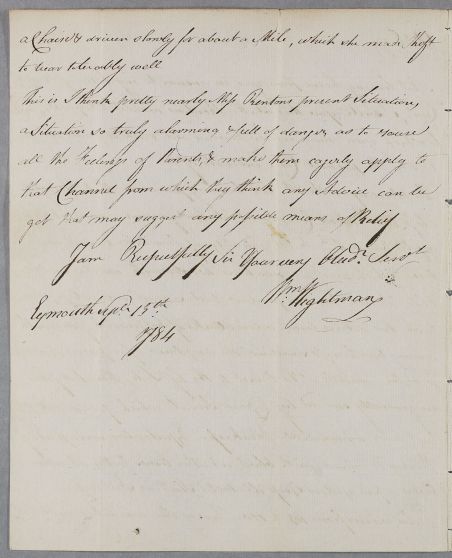 a Chaise & driven slowly for about a Mile, which she made shift
to bear tolerably well
This is I think pretty nearly Miss Rentons present Situation,
a Situation so truly alarming & full of danger as to rouse
all the Feelings of Parents, & make them eagerly apply to
that Channel from which they think any Advice can be
got that may suggest any possible means of Relief
I am Respectfully Sir Your very Obedt. Servt
Wm. Wightman
Eymouth Sepr. 13th.
1784